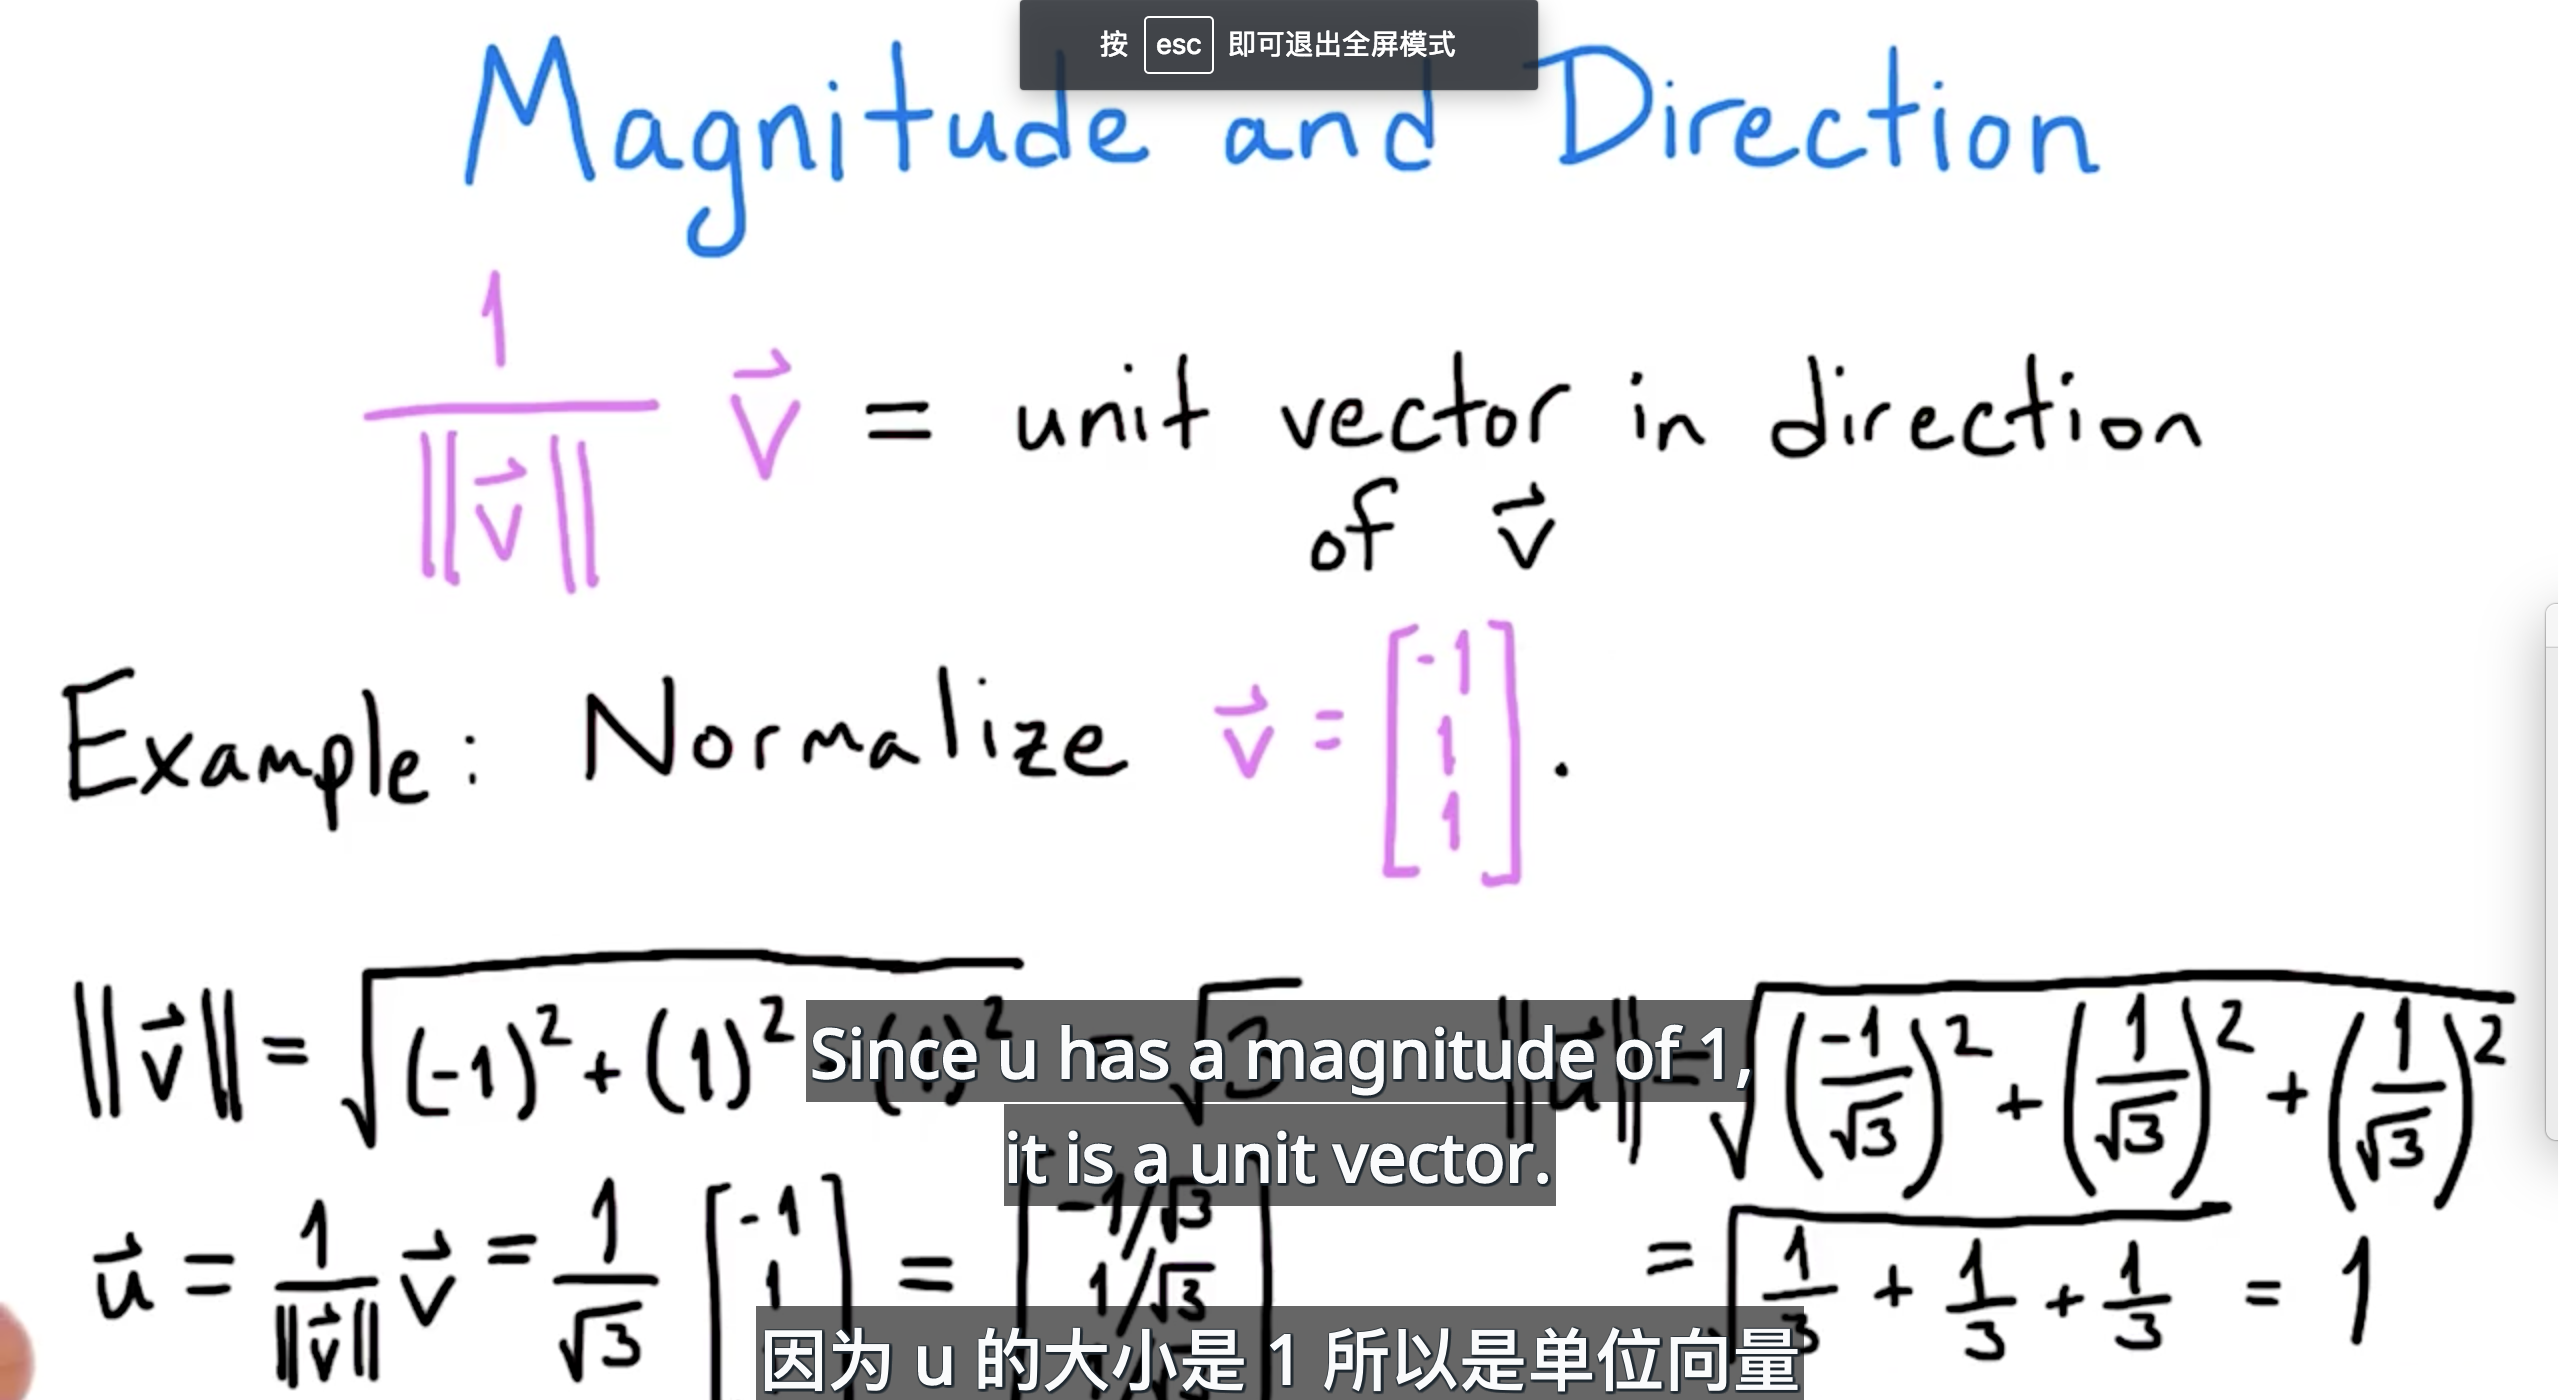 按 esc 即可退出全屏模式
Magnitude and Direction
1/‖v⃗‖ v⃗ = unit vector in direction
of v⃗
Example: Normalize v⃗ = [-1 1 1].
‖v⃗‖ = √((-1)² + (1)² + (1)²) = √3
‖u⃗‖ = √((-1/√3)² + (1/√3)² + (1/√3)²)
= √(1/3 + 1/3 + 1/3) = 1
u⃗ = 1/‖v⃗‖ v⃗ = 1/√3 [-1 1 = [-1/√3 1/√3
Since u has a magnitude of 1,
it is a unit vector.
因为 u 的大小是 1 所以是单位向量